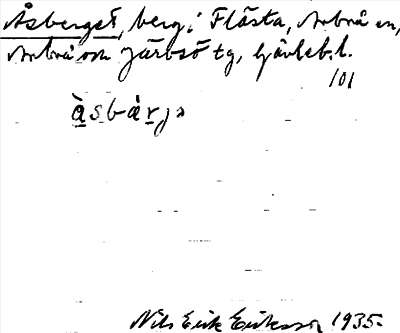 Åsberget, berg i Flästa, Arbrå sn,
Arbrå och Järvsö tg, Gävleb. l.
101
àsbàrjə
Nils Erik Eriksson 1935.